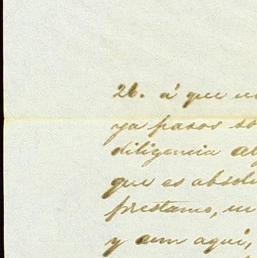 26. á que
ya pasos
diligencia
que es
prestamo,
y aun aquí,